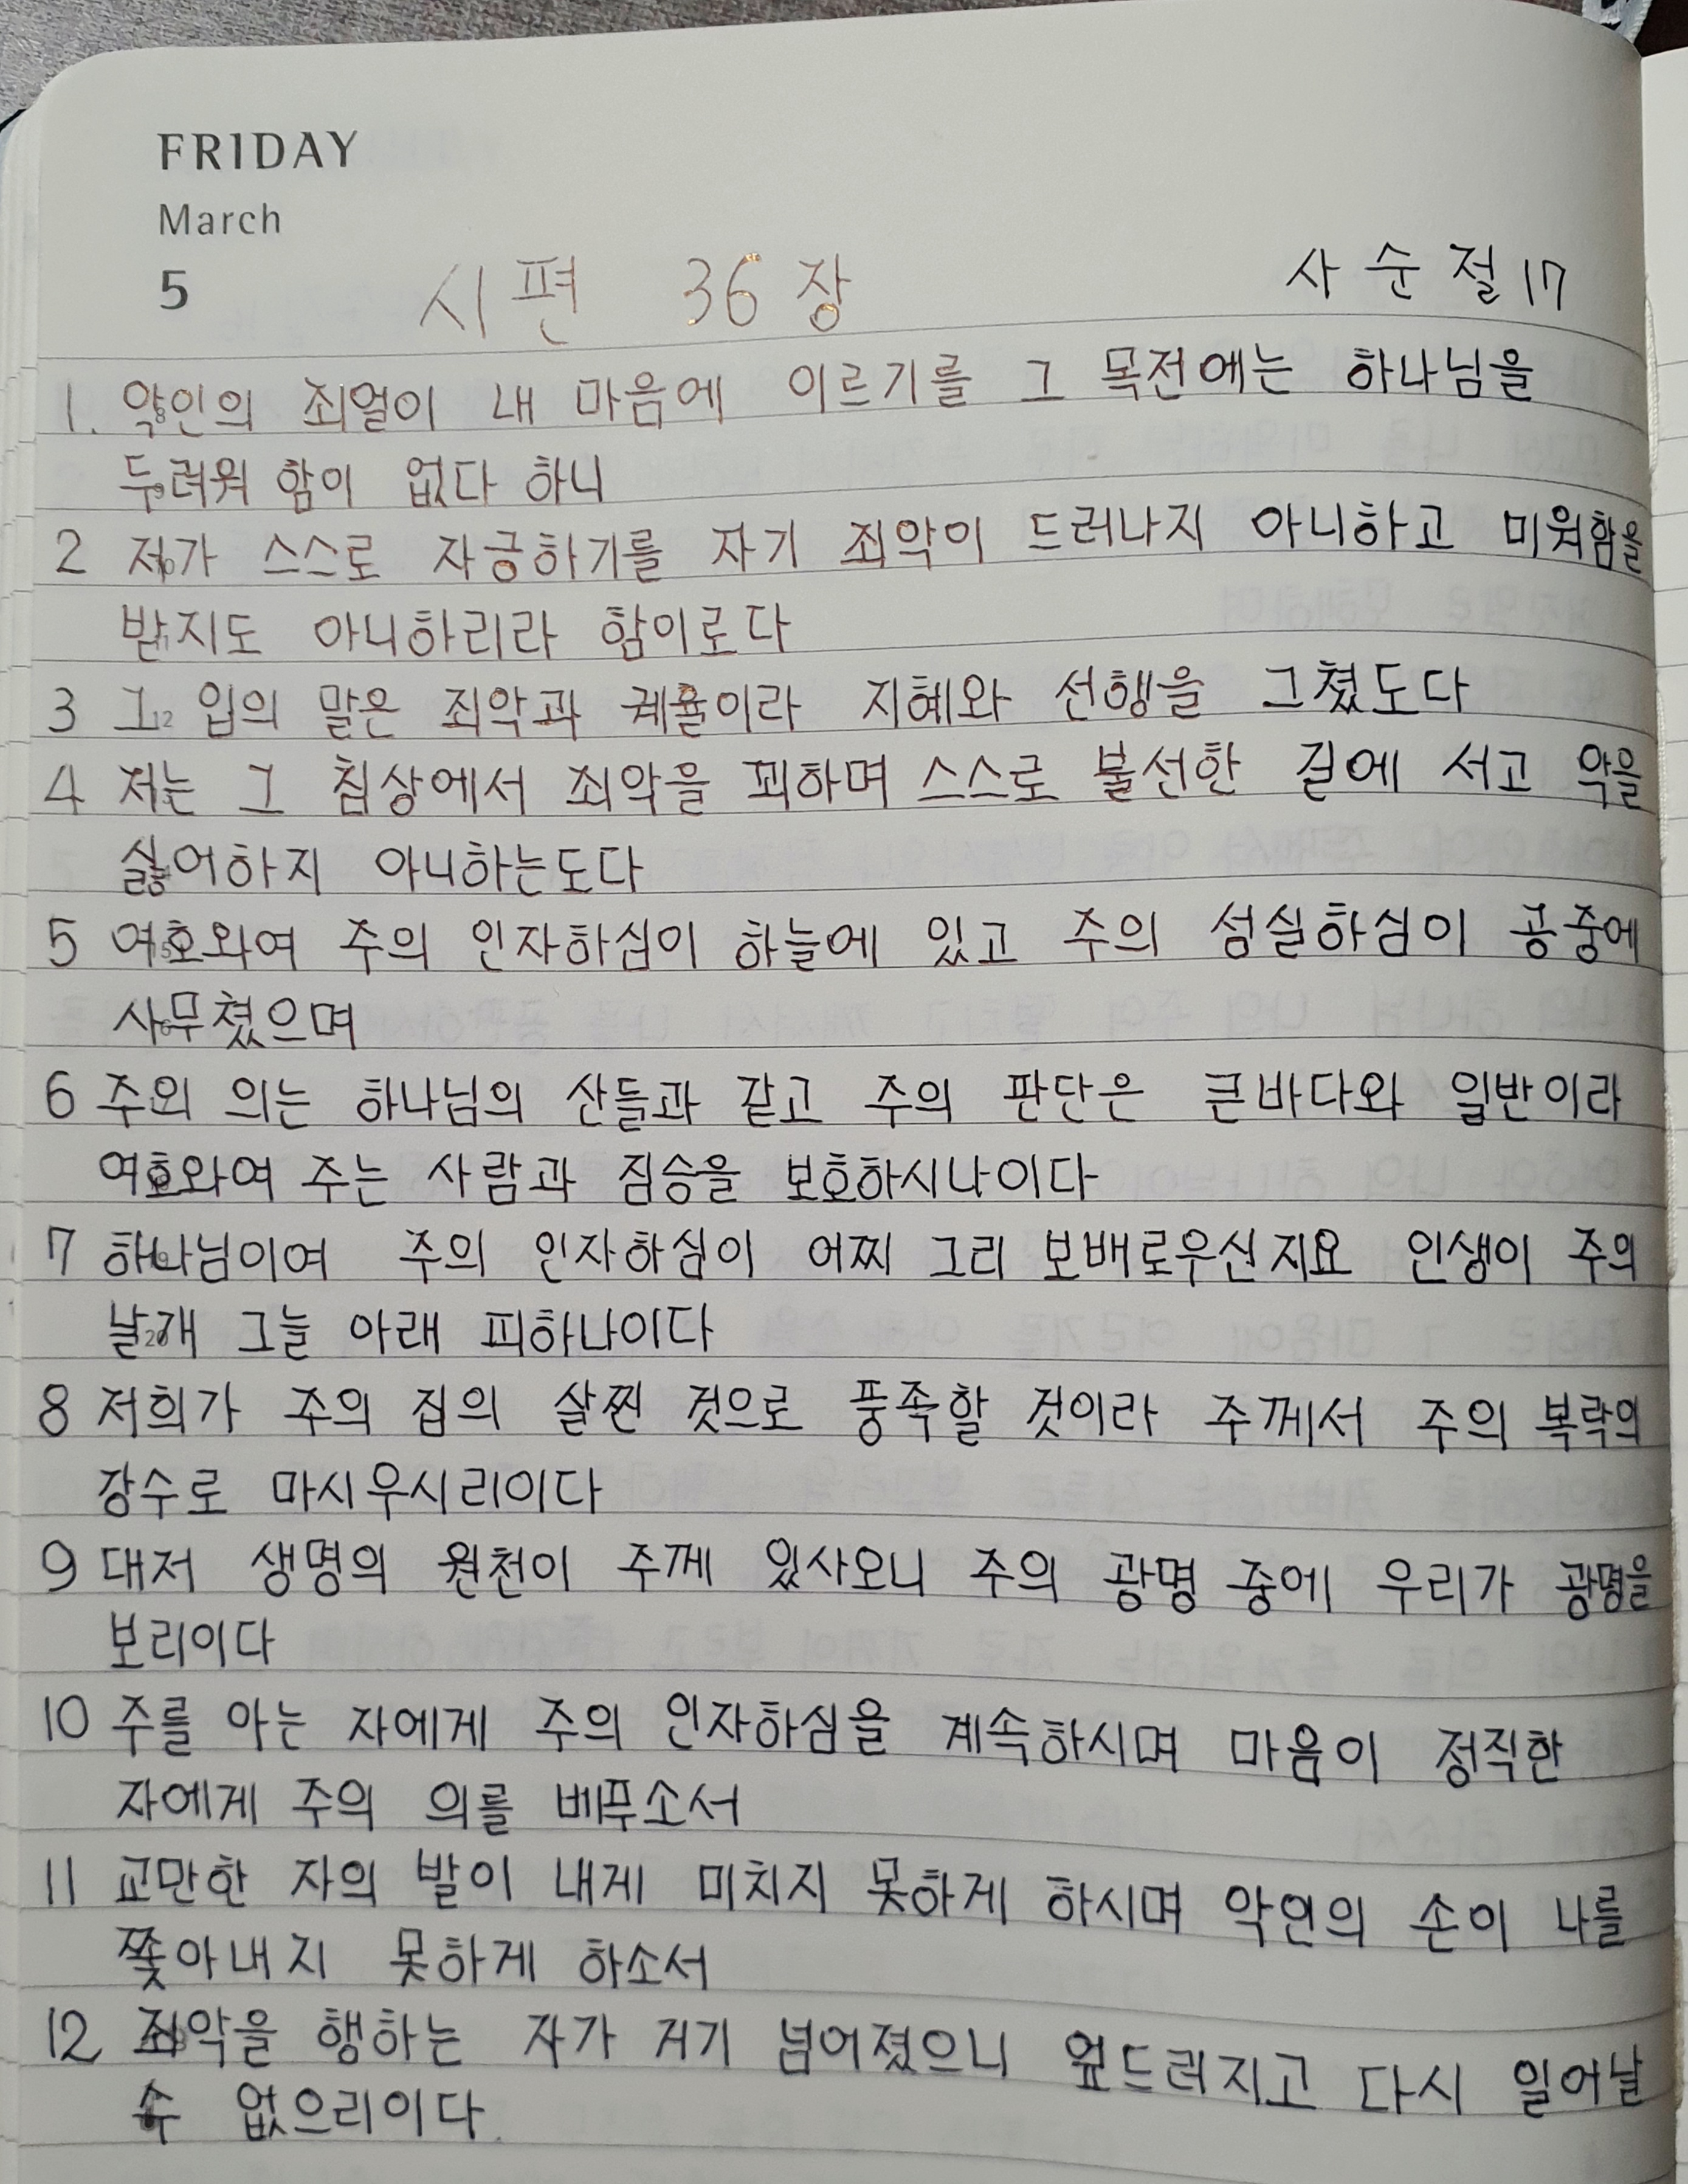 FRIDAY
March
5
시편 36장
사순절 17
1. 악인의 죄얼이 내 마음에 이르기를 그 목전에는 하나님을
두려워 함이 없다 하니
2 저가 스스로 자긍하기를 자기 죄악이 드러나지 아니하고 미워함을
받지도 아니하리라 함이로다
3 그 입의 말은 죄악과 궤율이라 지혜와 선행을 그쳤도다
4 저는 그 침상에서 죄악을 꾀하며 스스로 불선한 길에 서고 악을
싫어하지 아니하는도다
5 여호와여 주의 인자하심이 하늘에 있고 주의 성실하심이 공중에
사무쳤으며
6 주의 의는 하나님의 산들과 같고 주의 판단은 큰바다와 일반이라
여호와여 주는 사람과 짐승을 보호하시나이다
7 하나님이여 주의 인자하심이 어찌 그리 보배로우신지요 인생이 주의
날개 그늘 아래 피하나이다
8 저희가 주의 집의 살찐 것으로 풍족할 것이라 주께서 주의 복락의
강수로 마시우시리이다
9 대저 생명의 원천이 주께 있사오니 주의 광명 중에 우리가 광명을
보리이다
10 주를 아는 자에게 주의 인자하심을 계속하시며 마음이 정직한
자에게 주의 의를 베푸소서
11 교만한 자의 발이 내게 미치지 못하게 하시며 악인의 손이 나를
쫓아내지 못하게 하소서
12 죄악을 행하는 자가 거기 넘어졌으니 엎드러지고 다시 일어날
수 없으리이다.